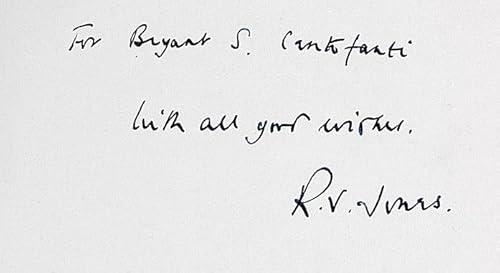 For Bryant S.
with all good wishes.
R.V. Jones.